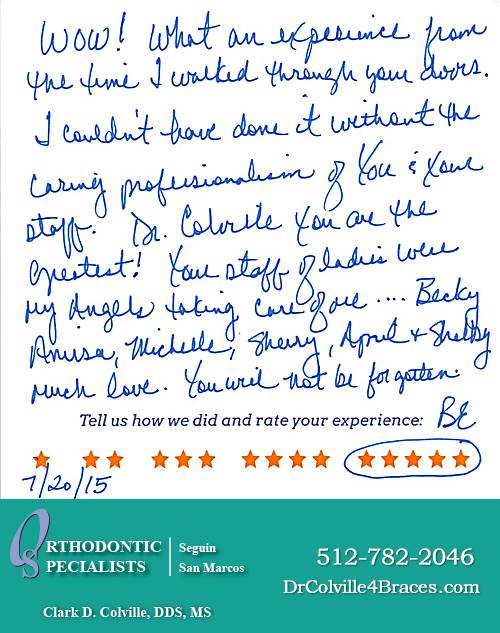 WOW! What an experience from
the time I walked through your doors.
I couldn't have done it without the
caring professionalism of You & Your
staff. Dr. Colville You are the
greatest! Your staff of ladies were
my Angels taking care of me .... Becky
Anissa, Michelle, Sherry, April & Shelby
much love. You will not be forgotten.
Tell us how we did and rate your experience: BE
7/20/15
ORTHODONTIC SPECIALISTS
Seguin
San Marcos
512-782-2046
DrColville4Braces.com
Clark D. Colville, DDS, MS